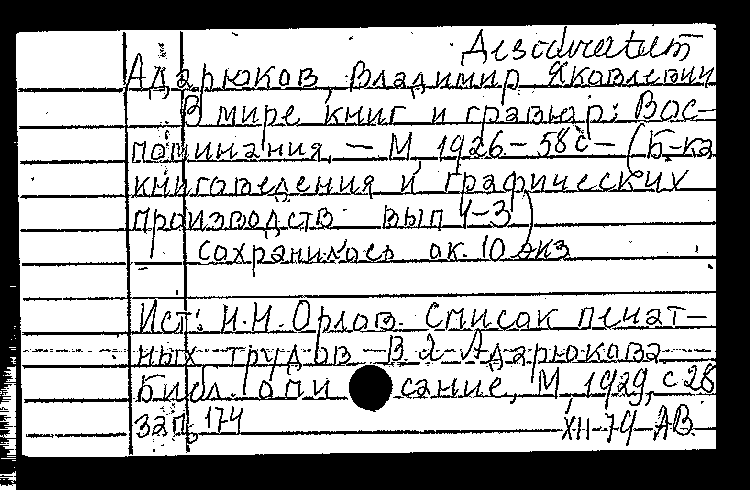 Desideratum
Адарюков, Владимир Яковлевич
В мире книг и гравюр: Вос-
поминания. — М, 1926 — 58 с — (Б-ка
книговедения и графических
производств вып 1-3)
сохранилось ок. 10 экз
Ист: Н.Н. Орлов. Список печат-
ных трудов В Я Адарюкова —
Библ. описание, М, 1929, с 28
зап, 174 XII-79 АВ